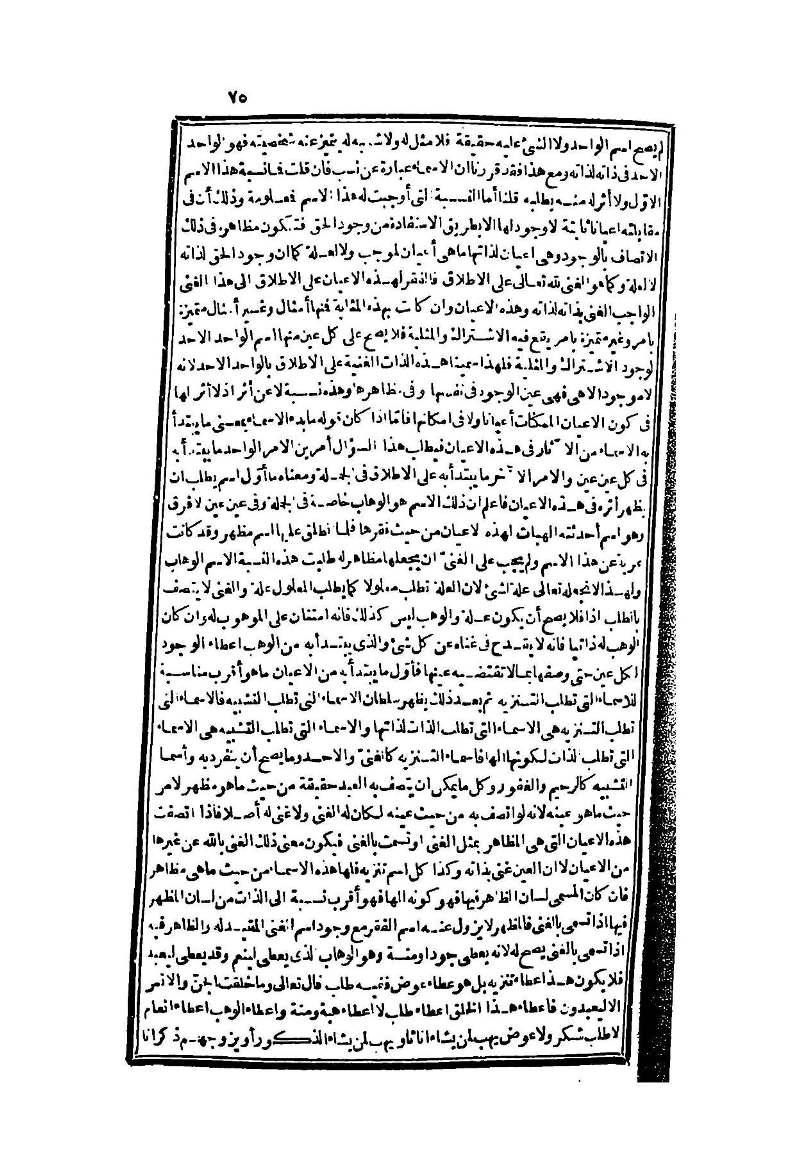 ٧٥
لم يصح اسم الواحد ولا الشئ عليه حقيقة فلا مثل له ولا شبيه له يتميز عنه بشخصيته فهو الواحد
الاحد فى ذاته لذاته ومع هذا فقد قررنا ان الاسماء عبارة عن نسب فان قلت فما نسبة هذا الاسم
الاول ولا أثر له منه يطلبه قلنا أما النسبة التى أوجبت له هذا الاسم فمعلومة وذلك أن فى
مقابلته اعيانا ثابتة لا وجود لها الا بطريق الاستفادة من وجود الحق فتكون مظاهره فى ذلك
الاتصاف بالوجود وهى اعيان لذاتها ما هى أعيان لموجب ولا لعلة كما ان وجود الحق لذاته
لا لعلة وكما هو الغنى لله تعالى على الاطلاق فالفقر لهذه الاعيان على الاطلاق الى هذا الغنى
الواجب الغنى بذاته لذاته وهذه الاعيان وان كانت بهذه المثابة فمنها أمثال وغير أمثال متميزة
بامر وغير متميزة بامر يقع فيه الاشتراك والمثلية فلا يصح على كل عين منها اسم الواحد الاحد
لوجود الاشتراك والمثلية فلهذا سمينا هذه الذات الغنية على الاطلاق بالواحد الاحد لانه
لا موجود الا هى فهى عين الوجود فى نفسها وفى مظاهرها وهذه نسبة لا عن أثر اذ لا أثر لها
فى كون الاعيان الممكنات أعيانا ولا فى امكانها فاما اذا كان قوله ما بدء الاسماء بمعنى ما يبتدأ
به الاسماء من الآثار فى هذه الاعيان فيطلب هذا السؤال أمرين الامر الواحد ما يبتدأ به
فى كل عين عين والامر الآخر ما يبتدأ به على الاطلاق فى الجملة ومعناه ما أول اسم يطلب ان
يظهر أثره فى هذه الاعيان فاعلم ان ذلك الاسم هو الوهاب خاصة فى الجملة وفى عين عين لا فرق
وهو اسم أحدثته الهبات لهذه الاعيان من حيث فقرها فلما تطلق عليها اسم مظهر وقد كانت
عرية عن هذا الاسم ولم يجب على الغنى ان يجعلها مظاهر له طلبت هذه النسبة الاسم الوهاب
ولهذا لا نجعله تعالى علة لشئ لان العلة تطلب معلولا كما يطلب المعلول علة والغنى لا يتصف
بالطلب اذا فلا يصح أن يكون علة والوهب ليس كذلك فانه امتنان على الموهوب له وان كان
الوهب له ذاتيا فانه لا يقدح فى غناه عن كل شئ والذى يبتدأ به من الوهب اعطاء الوجود
لكل عين حتى وصفها بما لا تقتضيه عينها فأول ما يبتدأ به من الاعيان ما هو أقرب مناسبة
للاسماء التى تطلب التنزيه ثم بعد ذلك يظهر سلطان الاسماء التى تطلب التشبيه فالاسماء التى
تطلب التنزيه هى الاسماء التى تطلب الذات لذاتها والاسماء التى تطلب التشبيه هى الاسماء
التى تطلب الذات لكونها الها فاسماء التنزيه كالغنى والاحد وما يصح أن ينفرد به وأسماء
التشبيه كالرحيم والغفور وكل ما يمكن ان يتصف به العبد حقيقة من حيث ما هو مظهر لا من
حيث ما هو عينه لانه لو اتصف به من حيث عينه لكان له الغنى ولا غنى له أصلا فاذا اتصفت
هذه الاعيان التى هى المظاهر بمثل الغنى او تسمت بالغنى فيكون معنى ذلك الغنى بالله عن غيرها
من الاعيان لا ان العين غنى بذاته وكذا كل اسم تنزيه فلها هذه الاسماء من حيث ما هى مظاهر
فان كان المسمى لسان الظاهر فيها فهو كونه الها فهو أقرب نسبة الى الذات من لسان المظهر
فيها اذا تسمى بالغنى فالمظهر لا يزول عنه اسم الفقر مع وجود اسم الغنى المقيد له والظاهر فيه
اذا تسمى بالغنى يصح له لانه يعطى جودا ومنة وهو الوهاب الذى يعطى لينعم وقد يعطى ليعبد
فلا يكون هذا عطاء تنزيه بل هو عطاء عوض ففيه طلب قال تعالى وما خلقت الجن والانس
الا ليعبدون فاعطاء هذا الخلق اعطاء طلب لا اعطاء هبة ومنة واعطاء الوهب اعطاء انعام
لا لطلب شكر ولا عوض يهب لمن يشاء اناثا ويهب لمن يشاء الذكور أو يزوجهم ذكرانا